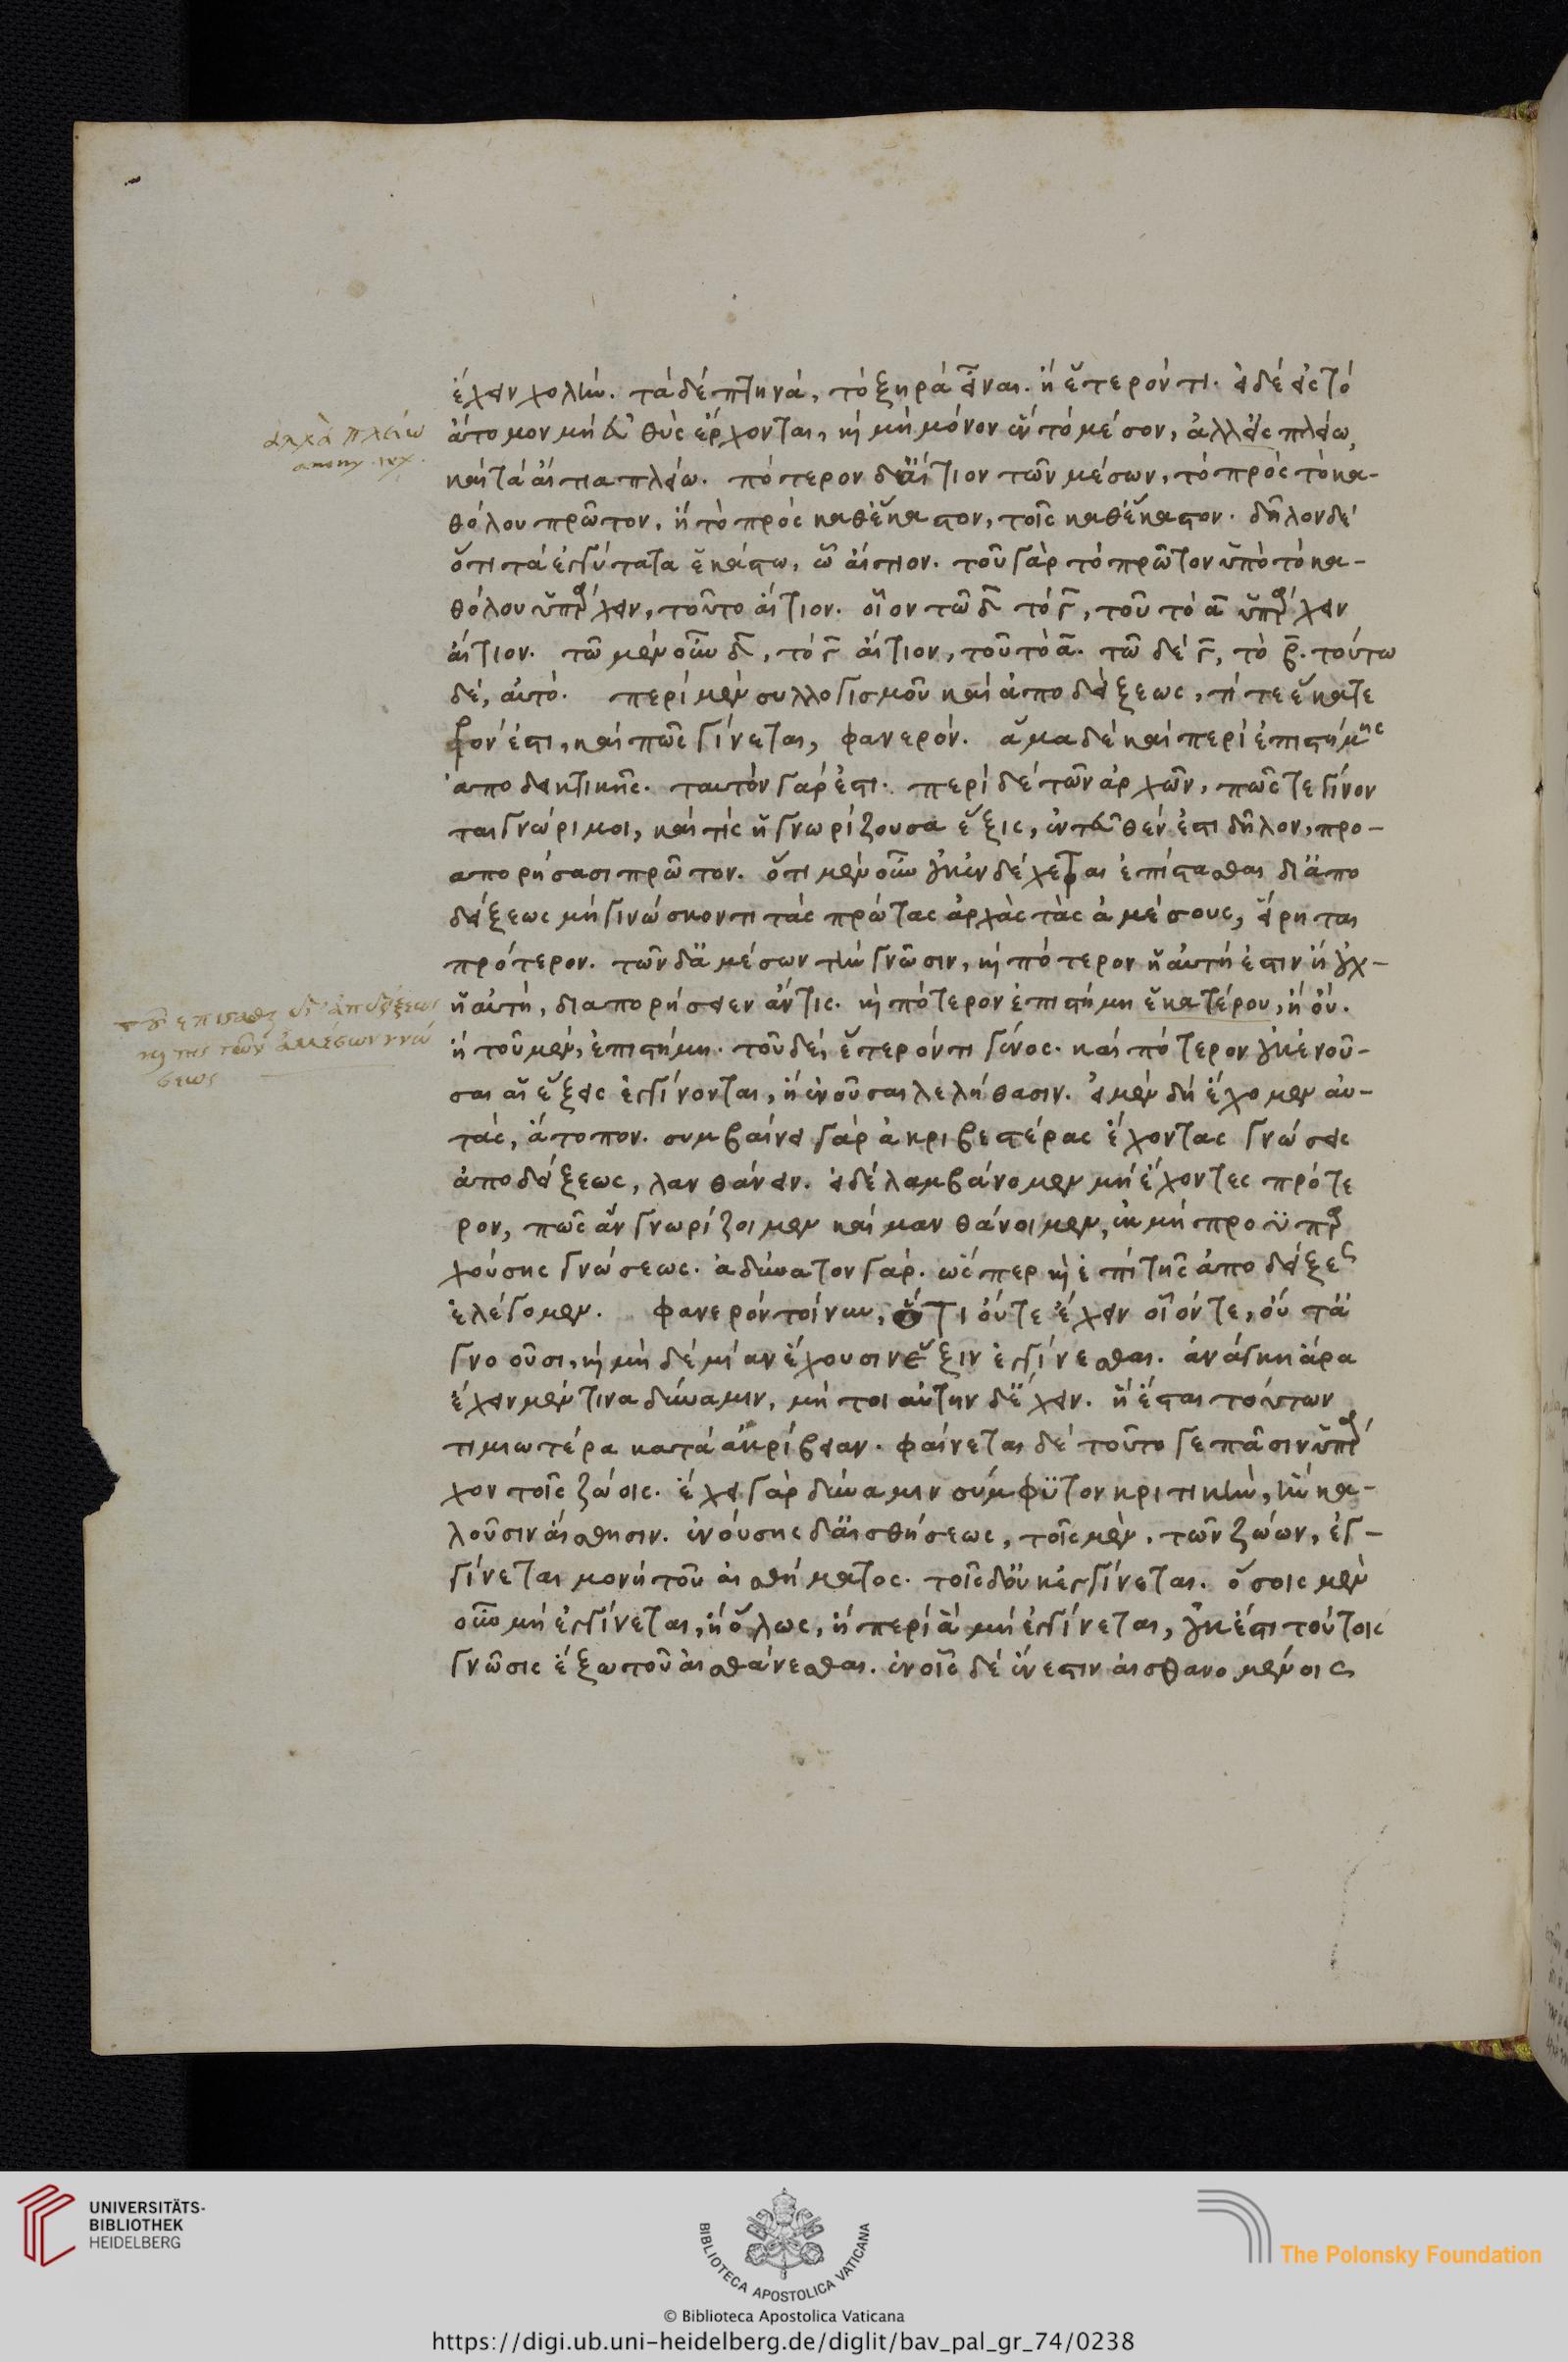 ἔχειν χολήν. τὰ δὲ πτηνὰ, τὸ ξηρὰ εἶναι. ἢ ἕτερόν τι. εἰ δὲ εἰς τὸ
ἄτομον μὴ εὐθὺς ἔρχονται, καὶ μὴ μόνον ἓν τὸ μέσον, ἀλλ' εἰς πλείω,
καὶ τὰ αἴτια πλείω. πότερον δ' αἴτιον τῶν μέσων, τὸ πρὸς τὸ κα-
θόλου πρῶτον, ἢ τὸ πρὸς καθέκαστον, τοῖς καθέκαστον. δῆλον δὲ
ὅτι τὰ ἐγγύτατα ἑκάστω, ὧ αἴτιον. τοῦ γὰρ τὸ πρῶτον ὑπὸ τὸ κα-
θόλου ὑπάρχειν, τοῦτο αἴτιον. οἷον τῶ δ τὸ γ, τοῦ τὸ α ὑπάρχειν
αἴτιον. τῶ μὲν οὖν δ, τὸ γ αἴτιον, τοῦ τὸ α. τῶ δὲ γ, τὸ β. τούτω
δὲ, αὐτό. περὶ μὲν συλλογισμοῦ καὶ ἀποδείξεως, τί τε ἑκάτε
ρόν ἐστι, καὶ πῶς γίνεται, φανερόν. ἅμα δὲ καὶ περὶ ἐπιστήμης
ἀποδεικτικῆς. ταυτὸν γάρ ἐστι. περὶ δὲ τῶν ἀρχῶν, πῶς τε γίνον
ται γνώριμοι, καὶ τίς ἡ γνωρίζουσα ἕξις, ἐντεῦθέν ἐστι δῆλον, προ-
απορήσασι πρῶτον. ὅτι μὲν οὖν οὐκ ἐνδέχεται ἐπίστασθαι δι' ἀπο
δείξεως μὴ γινώσκοντι τὰς πρώτας ἀρχὰς τὰς ἀμέσους, εἴρηται
πρότερον. τῶν δ' ἀμέσων τὴν γνῶσιν, καὶ πότερον ἡ αὐτή ἐστιν ἢ οὐχ-
ἡ αὐτὴ, διαπορήσειεν ἄν τις. καὶ πότερον ἐπιστήμη ἑκατέρου, ἢ οὔ.
ἢ τοῦ μὲν, ἐπιστήμη. τοῦ δὲ, ἕτερόν τι γένος. καὶ πότερον οὐκ ἐνοῦ-
σαι αἱ ἕξεις ἐγγίνονται, ἢ ἐνοῦσαι λελήθασιν. εἰ μὲν δὴ ἔχομεν αὐ-
τὰς, ἄτοπον. συμβαίνει γὰρ ἀκριβεστέρας ἔχοντας γνώσεις
ἀποδείξεως, λανθάνειν. εἰ δὲ λαμβάνομεν μὴ ἔχοντες πρότε
ρον, πῶς ἂν γνωρίζοιμεν καὶ μανθάνοιμεν, ἐκ μὴ προϋπαρ
χούσης γνώσεως. ἀδύνατον γάρ. ὥσπερ καὶ ἐπὶ τῆς ἀποδείξεως
ἐλέγομεν. φανερὸν τοίνυν, ὅτι οὔτε ἔχειν οἷόν τε, οὔτ' ἀ
γνοοῦσι, καὶ μηδὲ μίαν ἔχουσιν ἕξιν ἐγγίνεσθαι. ἀνάγκη ἄρα
ἔχειν μέν τινα δύναμιν, μὴ τοιαύτην δ' ἔχειν. ἣ ἔσται τούτων
τιμιωτέρα κατ' ἀκρίβειαν. φαίνεται δὲ τοῦτο γε πᾶσιν ὑπάρ
χον τοῖς ζώοις. ἔχει γὰρ δύναμιν σύμφυτον κριτικὴν, ἣν κα-
λοῦσιν αἴσθησιν. ἐνούσης δ' αἰσθήσεως, τοῖς μὲν, τῶν ζώων, ἐγ-
γίνεται μονὴ τοῦ αἰσθήματος. τοῖς δ' οὐκ ἐγγίνεται. ὅσοις μὲν
οὖν μὴ ἐγγίνεται, ἢ ὅλως, ἢ περὶ ἃ μὴ ἐγγίνεται, οὐκ ἔστι τούτοις
γνῶσις ἔξω τοῦ αἰσθάνεσθαι. ἐν οἷς δὲ ἔνεστιν αἰσθανομένοις
ἀλλὰ πλείω
τοῦ ἐπίστασθαι δι' ἀποδείξεως
καὶ τῆς τῶν ἀμέσων γνώ
σεως
UNIVERSITÄTS-
BIBLIOTHEK
HEIDELBERG
BIBLIOTECA APOSTOLICA VATICANA
The Polonsky Foundation
© Biblioteca Apostolica Vaticana
https://digi.ub.uni-heidelberg.de/diglit/bav_pal_gr_74/0238